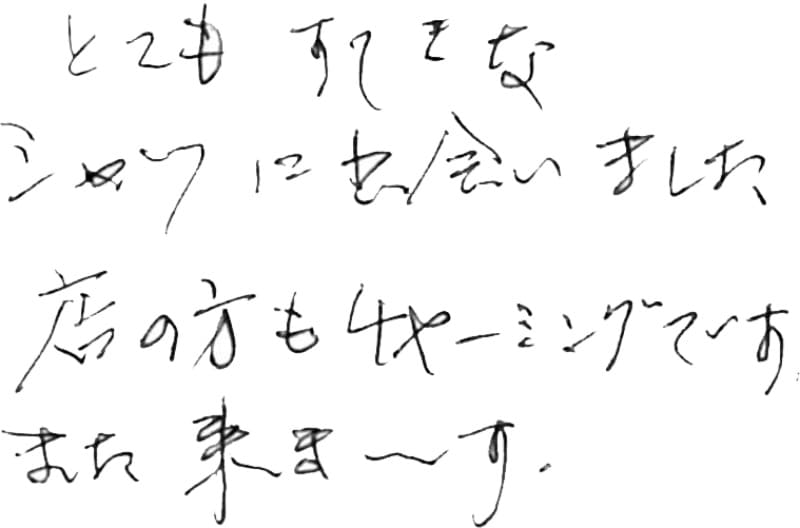 とても すてきな
シャツに出会いました
店の方もチャーミングです
また来ま〜す.